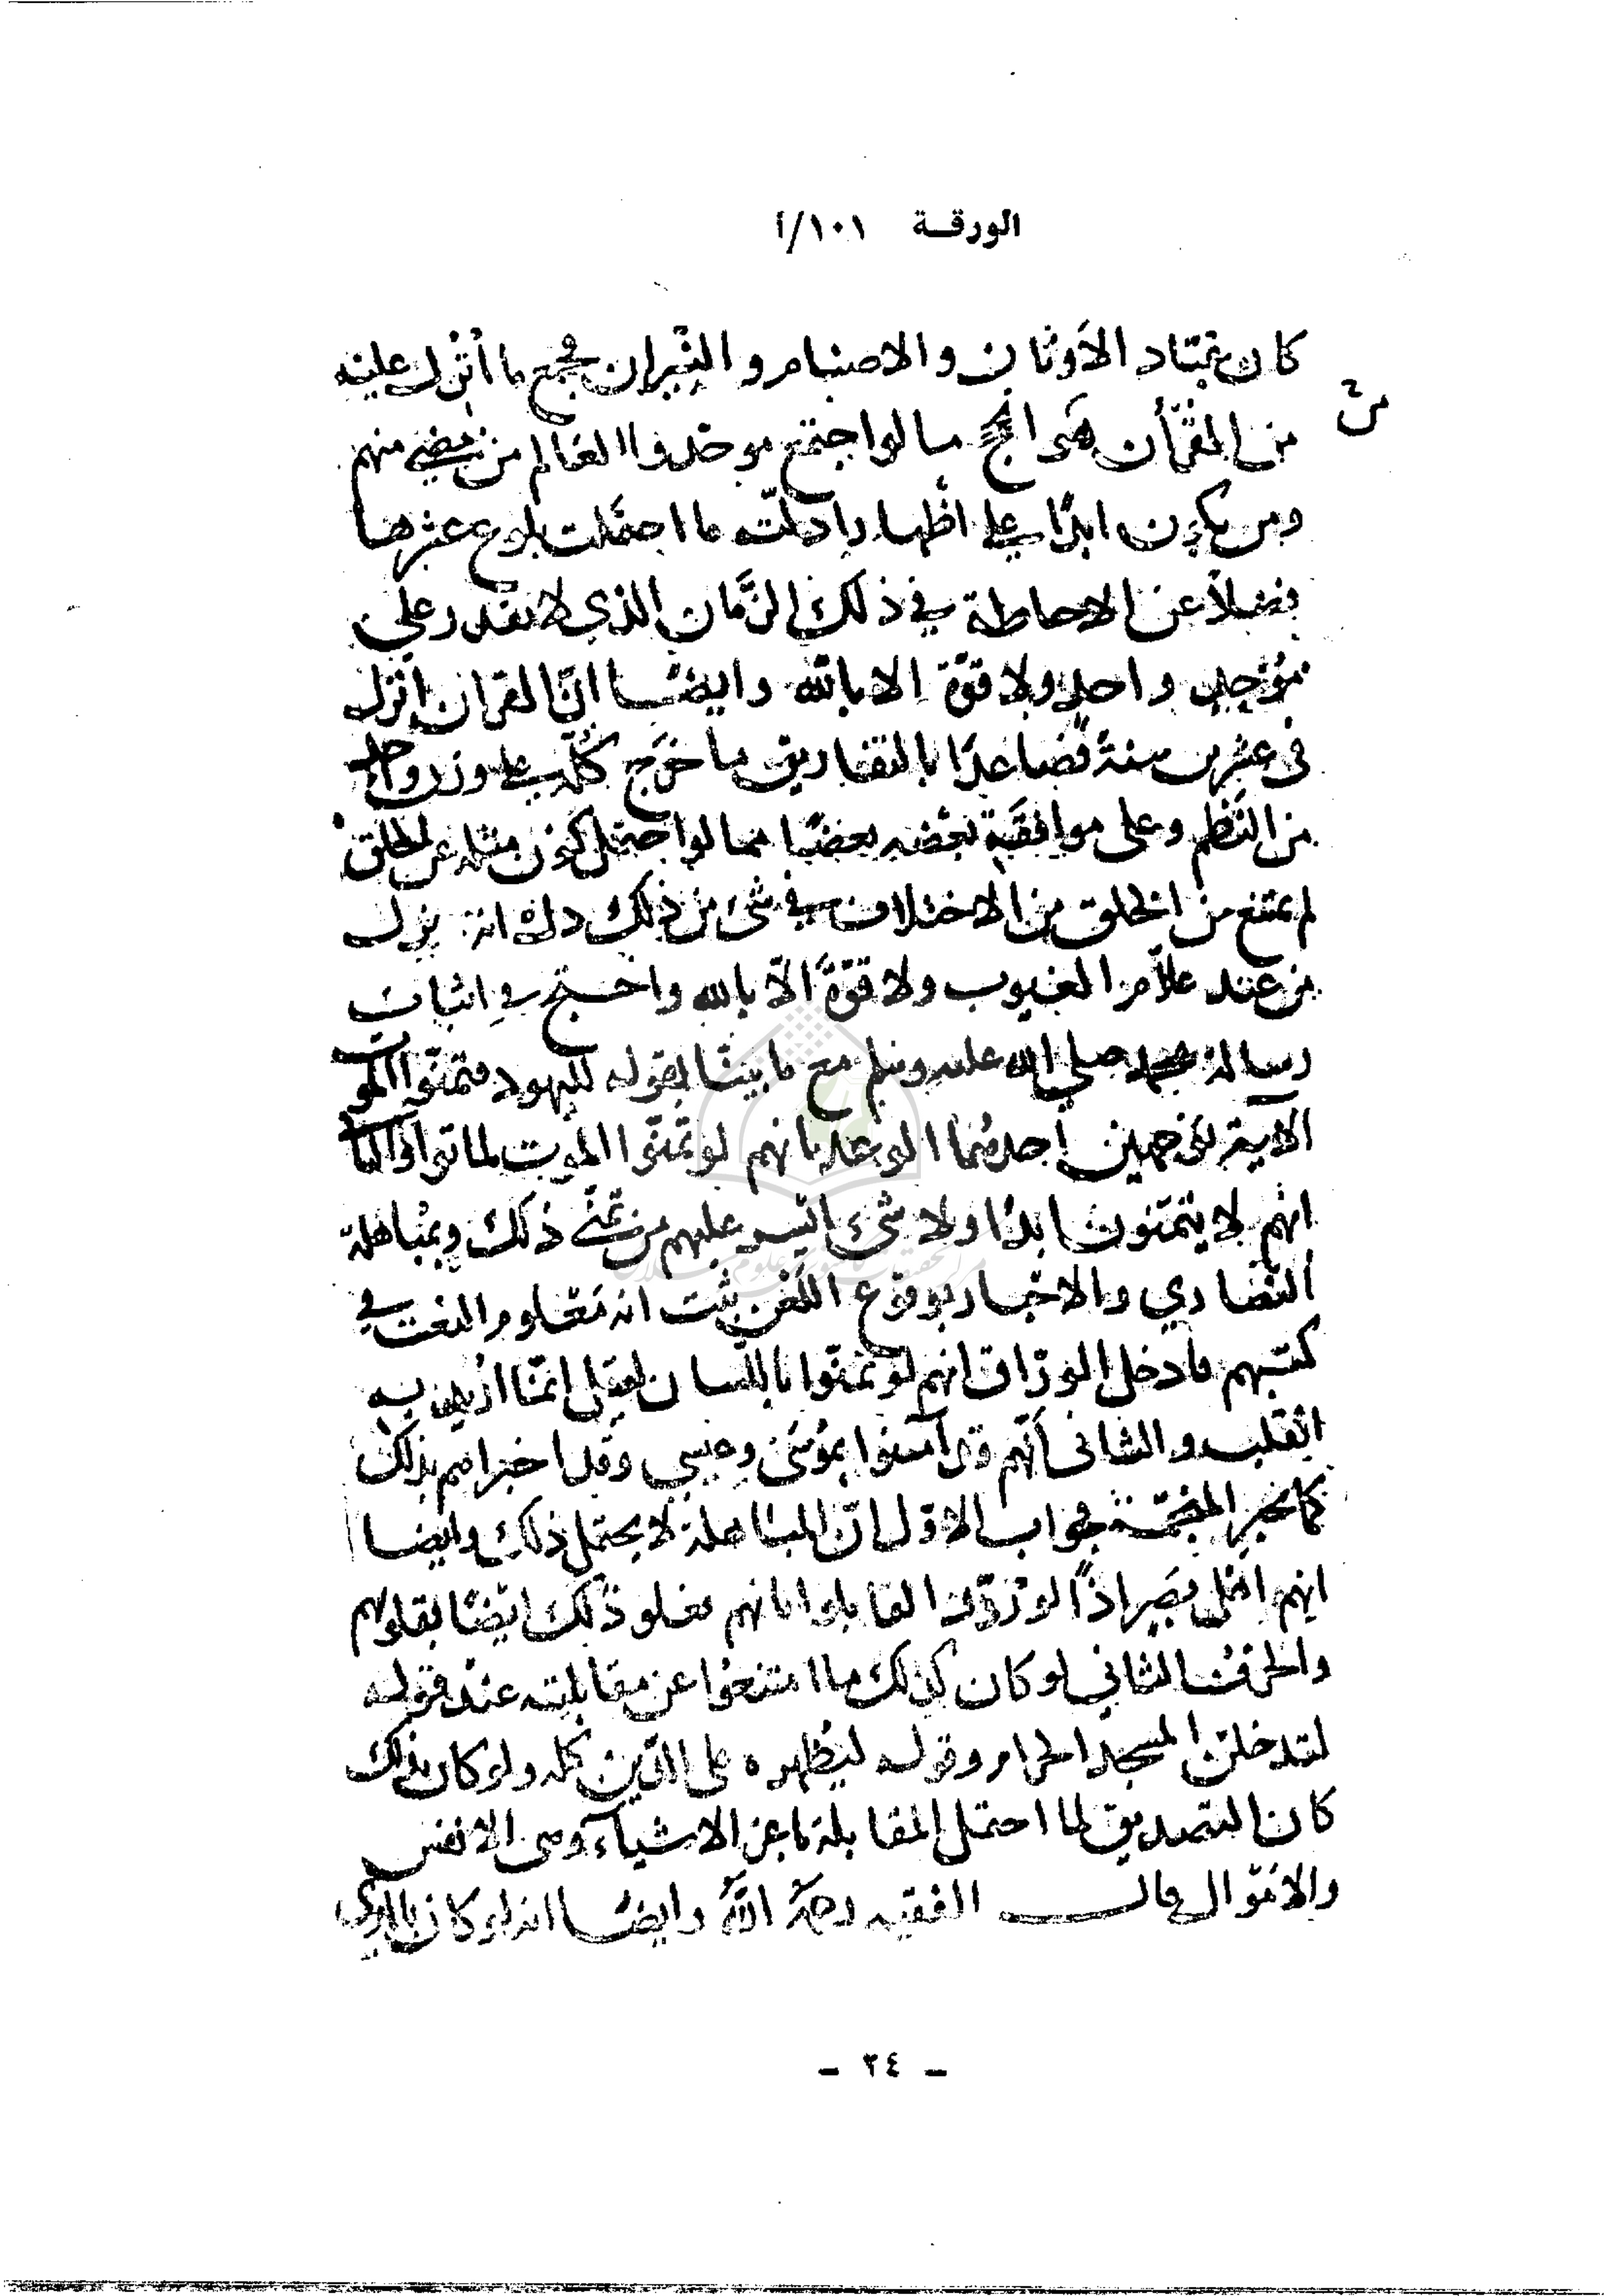 الورقة ١٠١/أ
كان بعباد الأوثان والاصنام والنيران فجمع ما أنزل عليه
من القرآن من الحجج ما لو اجتمع موحدوا العالم من مضى منهم
ومن يكون ابدًا على اظهار ادلته ما احتملت بلوغ عشرها
فضلاً عن الاحاطة في ذلك الزمان الذي لا نقدر على
موحد واحد ولا قوة الا بالله وايضًا انّ القرآن انزل
فى عشرين سنة فصاعدًا بالتفاريق ما خرج كله على وزن واحد
من النظم وعلى موافقة بعضه بعضًا مما لو احتمل كون مثله عن الخلق
لم يمتنع من الخلق من الاختلاف في شئ من ذلك دل انه نزل
من عند علاّم الغيوب ولا قوّة الّا بالله واحتج في اثبات
رسالة محمد صلى الله عليه وسلم مع ما بينا بقوله لليهود فتمنّوا الموت
الآية لوجهين احدهما الوعد بانهم لو تمنّوا الموت لماتوا والثانى
انهم لا يتمنون ابدًا ولا شئ ايسر عليهم من تمنى ذلك وبمباهلة
النصارى والاخبار بوقوع اللعن ثبت انه معلوم النعت في
كتبهم فأدخل الورّاق انهم لو تمنّوا باللسان لقيل انّما اريد به
القلب والثانى أنّهم قد آمنوا بموسى وعيسى وقد اخبراهم بذلك
كما يخبر المنجمة فجواب الاوّل انّ المباهلة لا يحتمل ذلك وايضا
انهم اقل بصر اذًا لو ردّوا لقابلوا بانهم فعلو ذلك ايضًا بقلوبهم
والحرف الثاني لو كان كذلك ما امتنعوا عن مقابلته عند قوله
لتدخلنّ المسجد الحرام وقوله ليظهره على الدّين كله ولو كان بذلك
كان التصديق لما احتمل المقابلة باعز الاشياء وهى الانفس
والاموال قال الفقيه رحمه الله وايضًا انه لو كان بالذى
- ٢٤ -